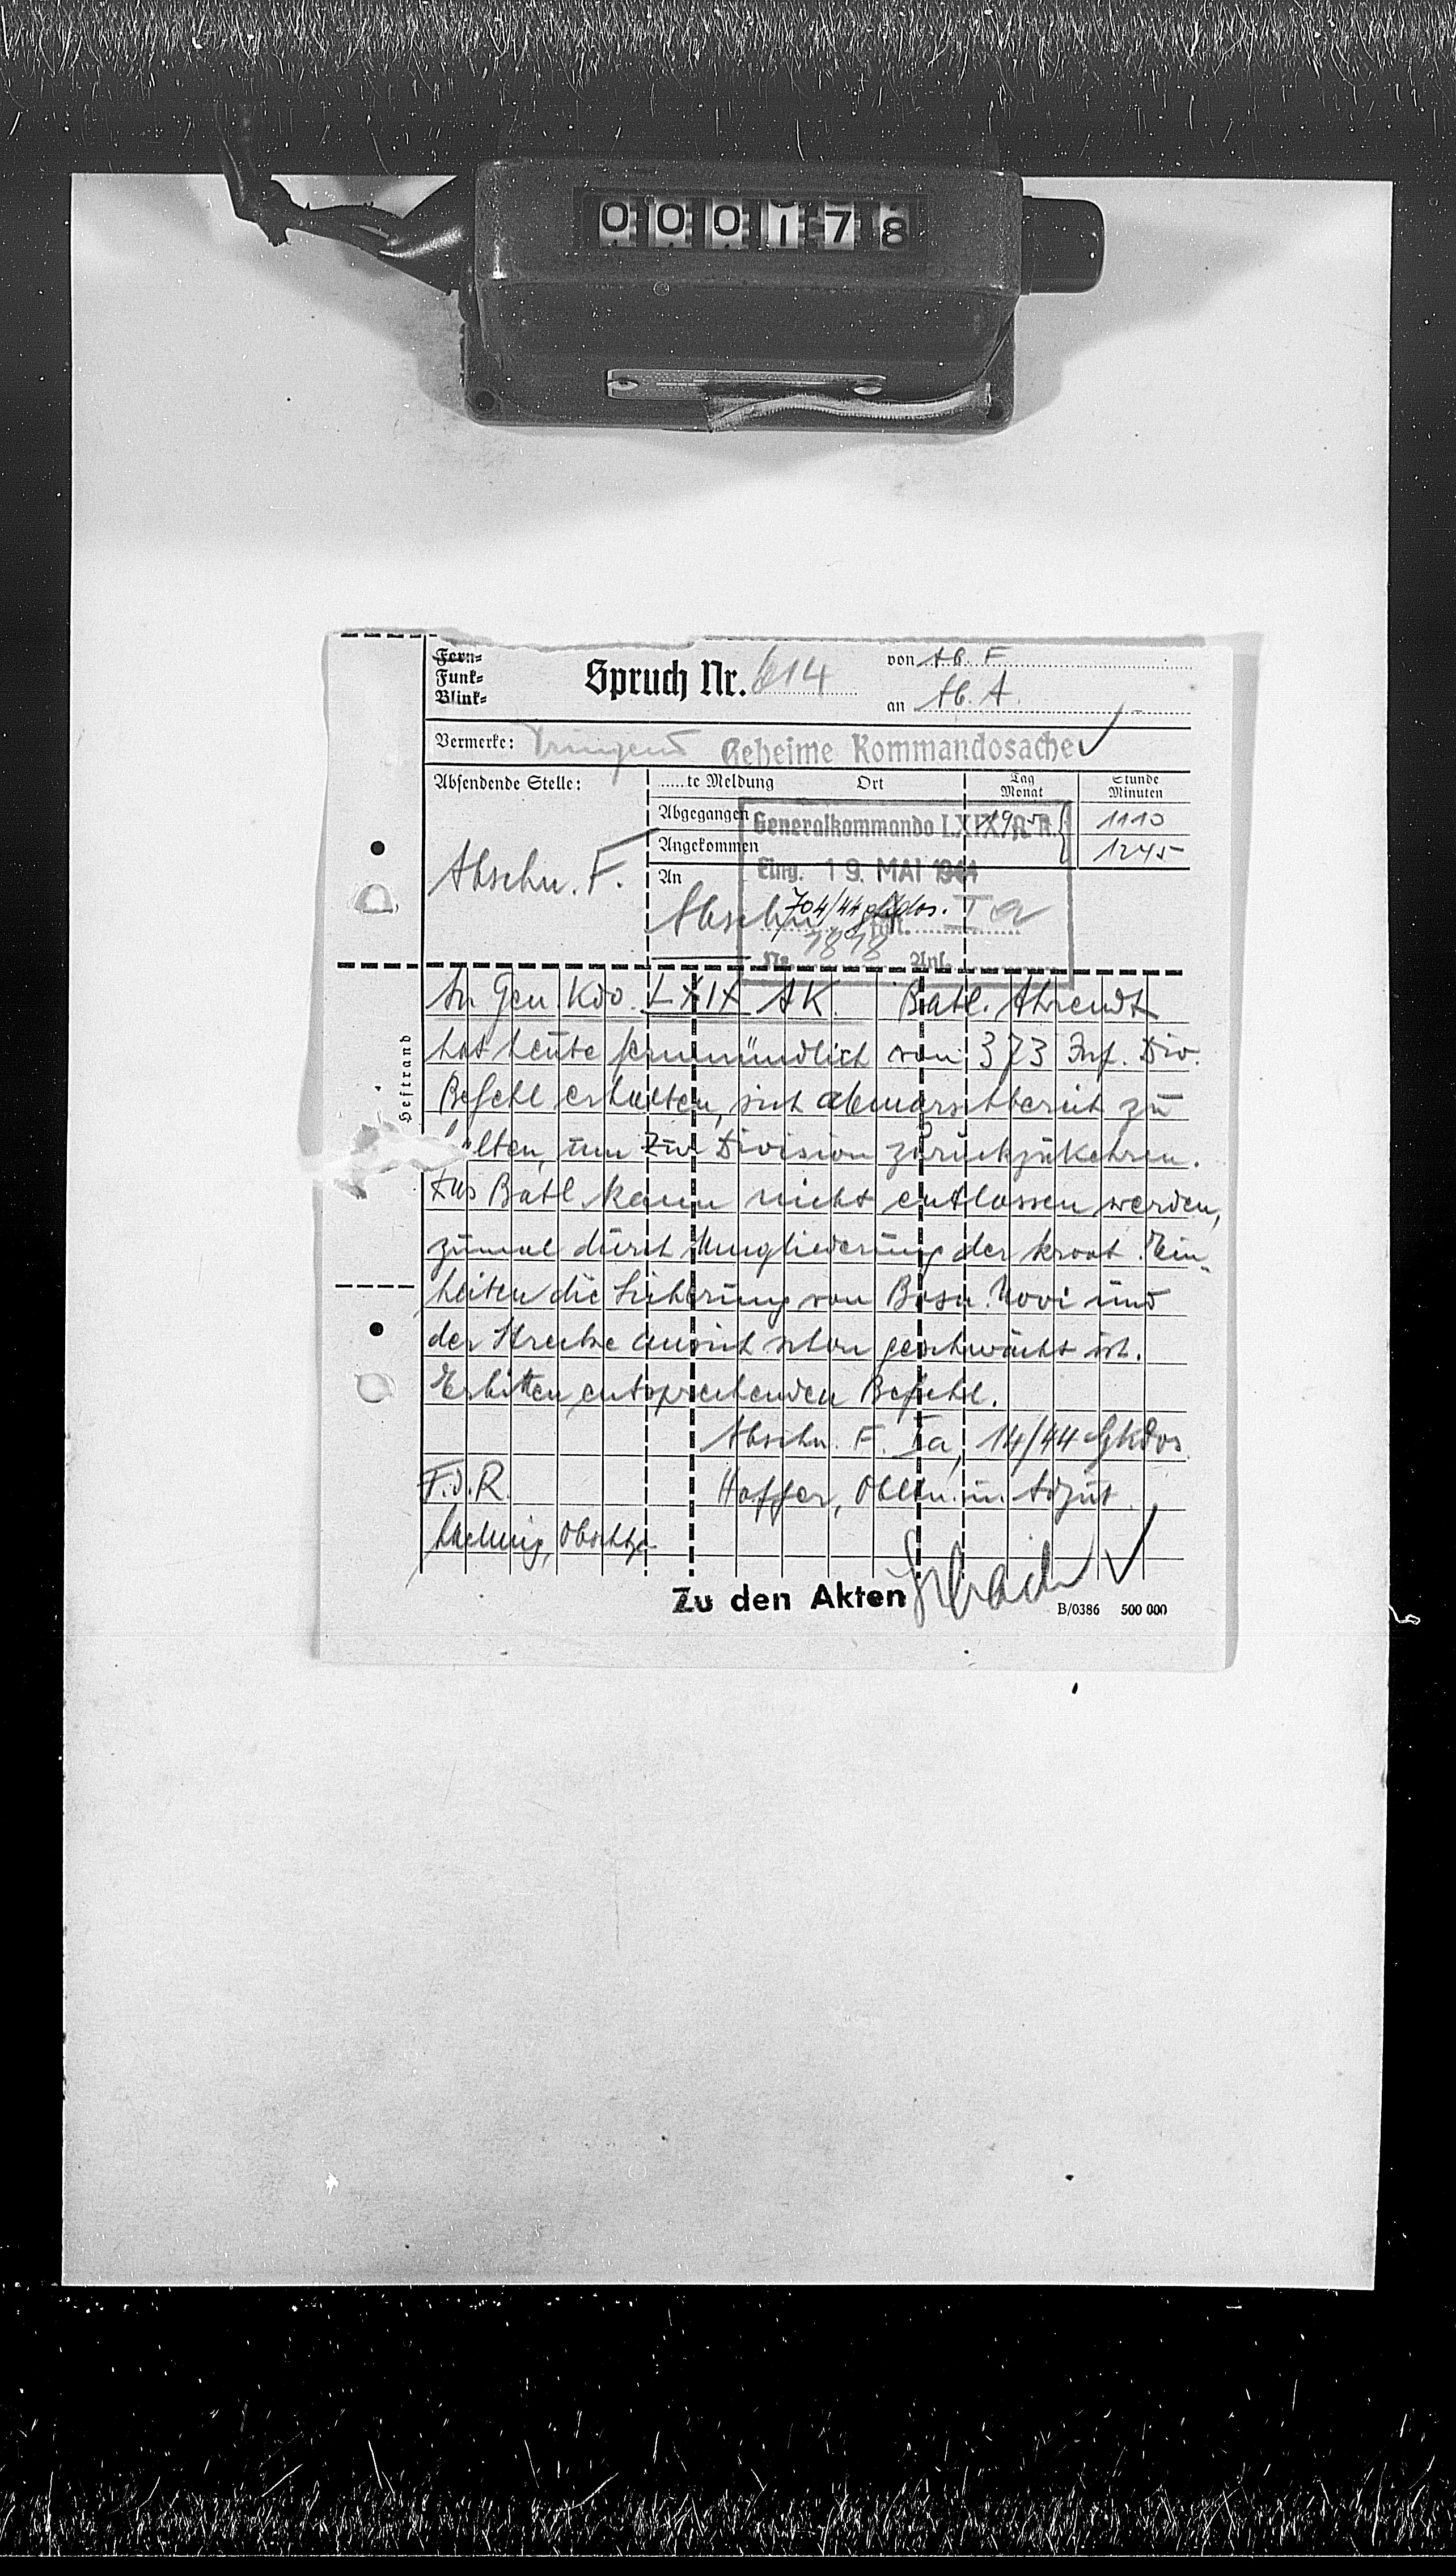 000178
Fern-
Funk-
Blink-
Spruch Nr. 614
von Ab. F.
an Ab. A.
Vermerke: Dringend Geheime Kommandosache
Absendende Stelle:
......te Meldung Ort Tag Monat Stunde Minuten
Abgegangen 19.5. 1110
Angekommen 1245
Generalkommando LXIX. A. K.
Eing. 19. MAI 1944
704/44 gKdos. Ia
Nr. 1818 Anl.
Abschn. F.
An
Abschn.
Heftrand
An Gen. Kdo. LXIX AK. Batl. Ahrendt
hat heute fernmündlich von 373 Inf. Div.
Befehl erhalten, sich abmarschbereit zu
halten, um zur Division zurückzukehren.
Das Batl kann nicht entlassen werden,
zumal durch Umgliederung der kroat. Ein-
heiten die Sicherung von Bosn. Novi und
der Strecke ansich schon geschwächt ist.
Erbitten entsprechenden Befehl.
Abschn. F. Ia, 14/44 gKdos
F.d.R. Hoffer, Obltn. u. Adjut.
Zu den Akten
B/0386 500 000